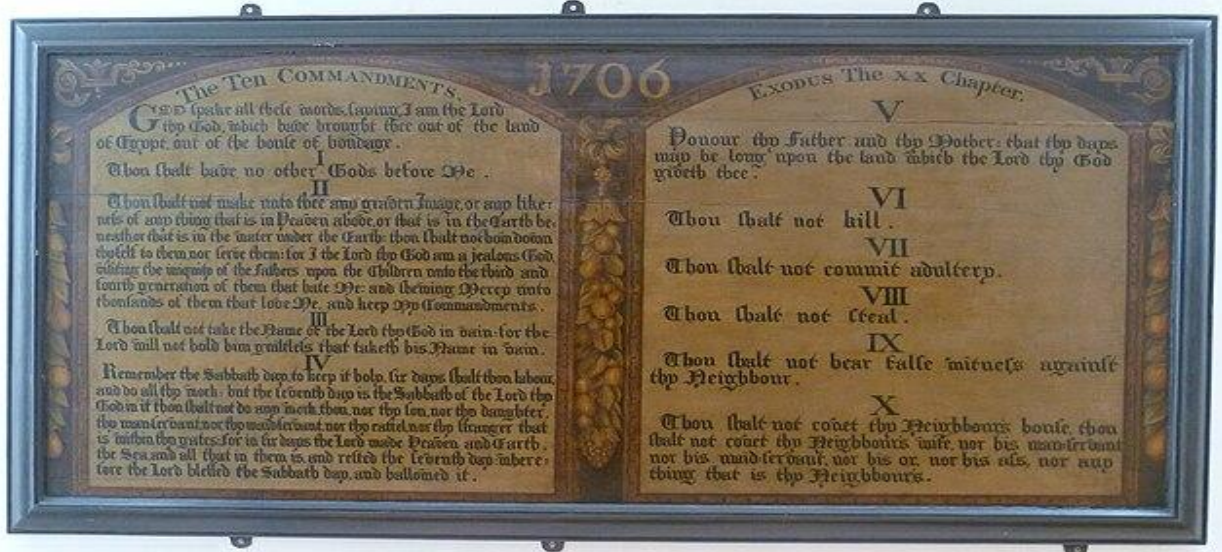 1706
The Ten COMMANDMENTS.
GOD spake all these words, saying, I am the Lord
thy God, which have brought thee out of the land
of Egypt, out of the house of bondage.
I
Thou shalt have no other Gods before Me.
II
Thou shalt not make unto thee any graven Image, or any like-
ness of any thing that is in Heaven above, or that is in the Earth be-
neath, or that is in the water under the Earth: thou shalt not bow down
thyself to them nor serve them: for I the Lord thy God am a jealous God,
visiting the iniquity of the Fathers upon the Children unto the third and
fourth generation of them that hate Me: and shewing Mercy unto
thousands of them that love Me, and keep My Commandments.
III
Thou shalt not take the Name of the Lord thy God in vain: for the
Lord will not hold him guiltless that taketh his Name in vain.
IV
Remember the Sabbath day, to keep it holy, six days shalt thou labour,
and do all thy work: but the seventh day is the Sabbath of the Lord thy
God in it thou shalt not do any work, thou, nor thy son, nor thy daughter,
thy man servant, nor thy maid servant, nor thy cattel, nor thy stranger that
is within thy gates: for in six days the Lord made Heaven and Earth,
the Sea, and all that in them is, and rested the seventh day: where-
fore the Lord blessed the Sabbath day, and hallowed it.
EXODUS The XX Chapter.
V
Honour thy Father and thy Mother: that thy days
may be long upon the land which the Lord thy God
giveth thee:
VI
Thou shalt not kill.
VII
Thou shalt not commit adultery.
VIII
Thou shalt not steal.
IX
Thou shalt not bear false witness against
thy Neighbour.
X
Thou shalt not covet thy Neighbours house, thou
shalt not covet thy Neighbours wife, nor his man-servant
nor his maid-servant, nor his ox, nor his ass, nor any
thing that is thy Neighbours.